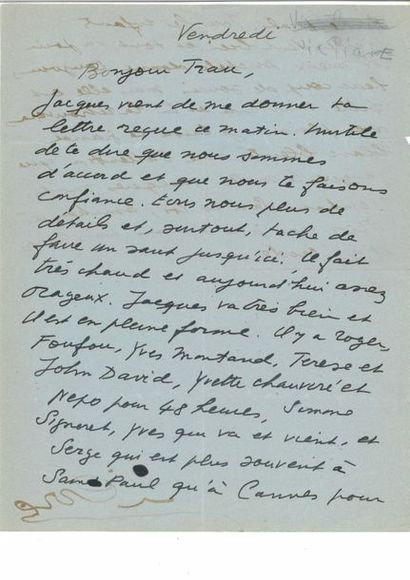 Vendredi
Bonjour Trau,
Jacques vient de me donner ta
lettre reçue ce matin. Inutile
de te dire que nous sommes
d'accord et que nous te faisons
confiance. Ecris nous plus de
détails et, surtout, tache de
faire un saut jusqu'ici, il fait
très chaud et aujourd'hui assez
orageux. Jacques va très bien et
il est en pleine forme. Il y a Roger,
Foufou, Yves Montand, Terese et
John David, Yvette chauviré et
Nepo pour 48 heures, Simone
Signoret, Yves qui va et vient, et
Serge qui est plus souvent à
Saint Paul qu'à Cannes pour